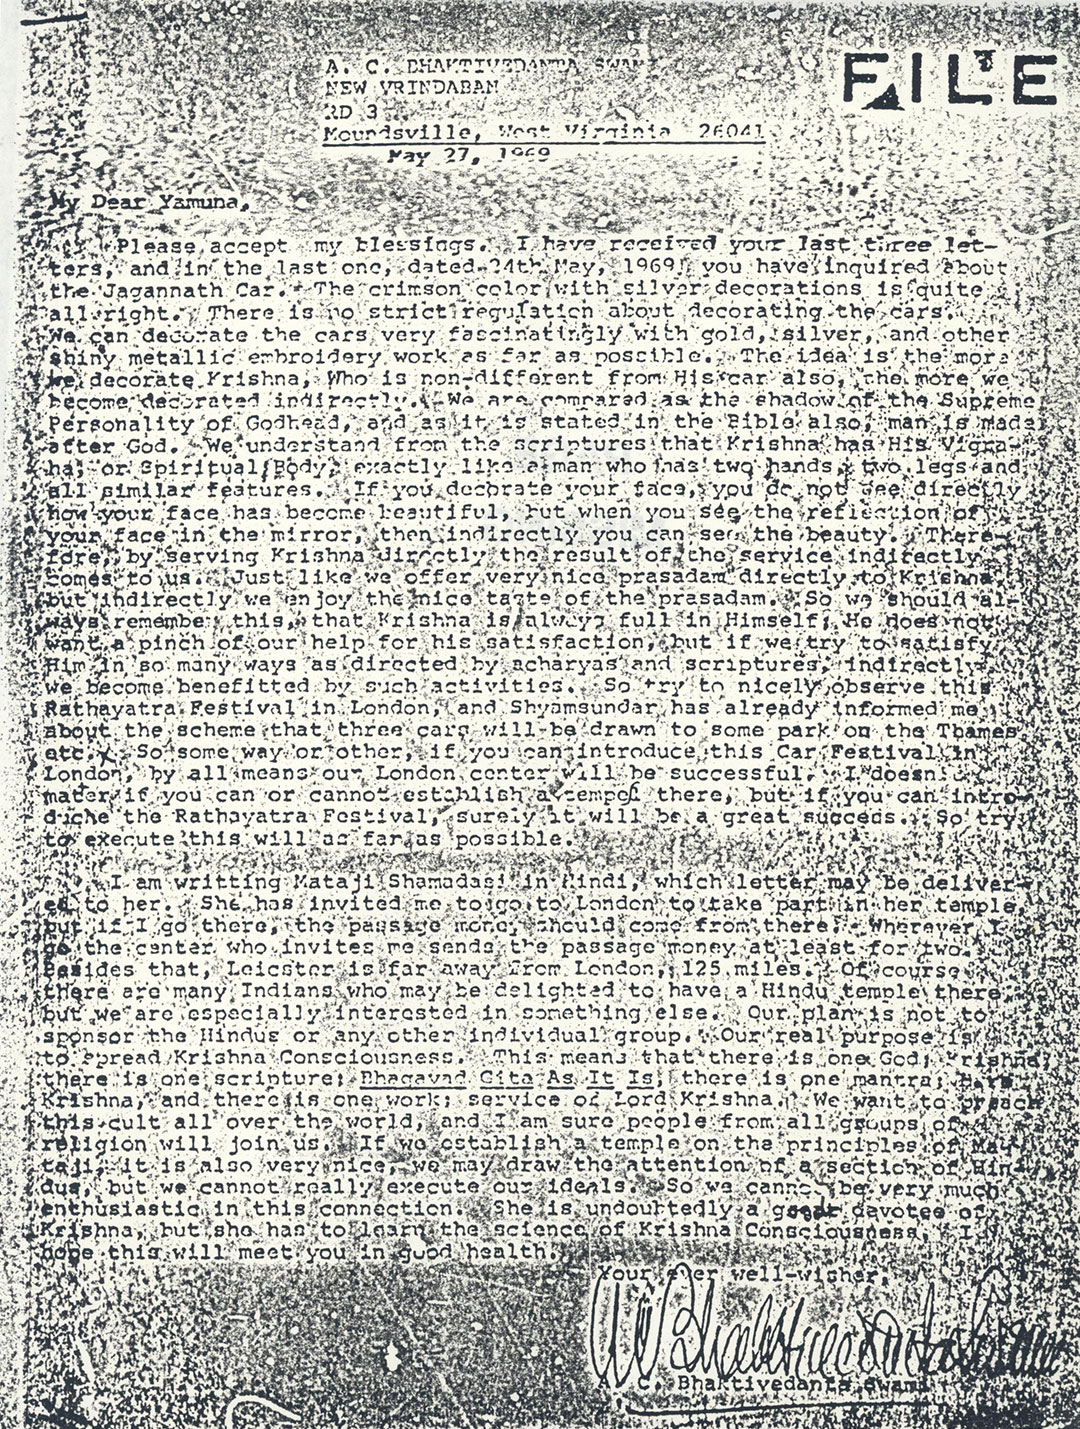 FILE
A. C. BHAKTIVEDANTA SWAMI
NEW VRINDABAN
RD 3
Moundsville, West Virginia 26041
May 27, 1969
My Dear Yamuna,
Please accept my blessings. I have received your last three let-
ters, and in the last one, dated 24th May, 1969, you have inquired about
the Jagannath Car. The crimson color with silver decorations is quite
all right. There is no strict regulation about decorating the cars.
We can decorate the cars very fascinatingly with gold, silver, and other
shiny metallic embroidery work as far as possible. The idea is the more
we decorate Krishna, Who is non-different from His car also, the more we
become decorated indirectly. We are compared as the shadow of the Supreme
Personality of Godhead, and as it is stated in the Bible also, man is made
after God. We understand from the scriptures that Krishna has His Vigra-
ha, or Spiritual Body, exactly like a man who has two hands, two legs and
all similar features. If you decorate your face, you do not see directly
how your face has become beautiful, but when you see the reflection of
your face in the mirror, then indirectly you can see the beauty. There-
fore, by serving Krishna directly the result of the service indirectly
comes to us. Just like we offer very nice prasadam directly to Krishna,
but indirectly we enjoy the nice taste of the prasadam. So we should al-
ways remember this, that Krishna is always full in Himself; He does not
want a pinch of our help for his satisfaction, but if we try to satisfy
Him in so many ways as directed by acharyas and scriptures, indirectly
we become benefitted by such activities. So try to nicely observe this
Rathayatra Festival in London, and Shyamsundar has already informed me
about the scheme that three cars will be drawn to some park on the Thames
etc. So some way or other, if you can introduce this Car Festival in
London, by all means our London center will be successful. I doesn't
mater if you can or cannot establish a tempel there, but if you can intro-
duche the Rathayatra Festival, surely it will be a great success. So try
to execute this will as far as possible.
I am writting Mataji Shamadasi in Hindi, which letter may be deliver-
ed to her. She has invited me to go to London to take part in her temple,
but if I go there, the passage money should come from there. Wherever I
go the center who invites me sends the passage money at least for two.
Besides that, Leicster is far away from London, 125 miles. Of course
there are many Indians who may be delighted to have a Hindu temple there
but we are especially interested in something else. Our plan is not to
sponsor the Hindus or any other individual group. Our real purpose is
to spread Krishna Consciousness. This means that there is one God; Krishna,
there is one scripture; Bhagavad Gita As It Is, there is one mantra; Hare
Krishna, and there is one work; service of Lord Krishna. We want to preach
this cult all over the world, and I am sure people from all groups of
religion will join us. If we establish a temple on the principles of Ma-
taji, it is also very nice, we may draw the attention of a section of Hin-
dus, but we cannot really execute our ideals. So we cannot be very much
enthusiastic in this connection. She is undoubtedly a great devotee of
Krishna, but she has to learn the science of Krishna Consciousness. I
hope this will meet you in good health.
Your ever well-wisher,
A. C. Bhaktivedanta Swami